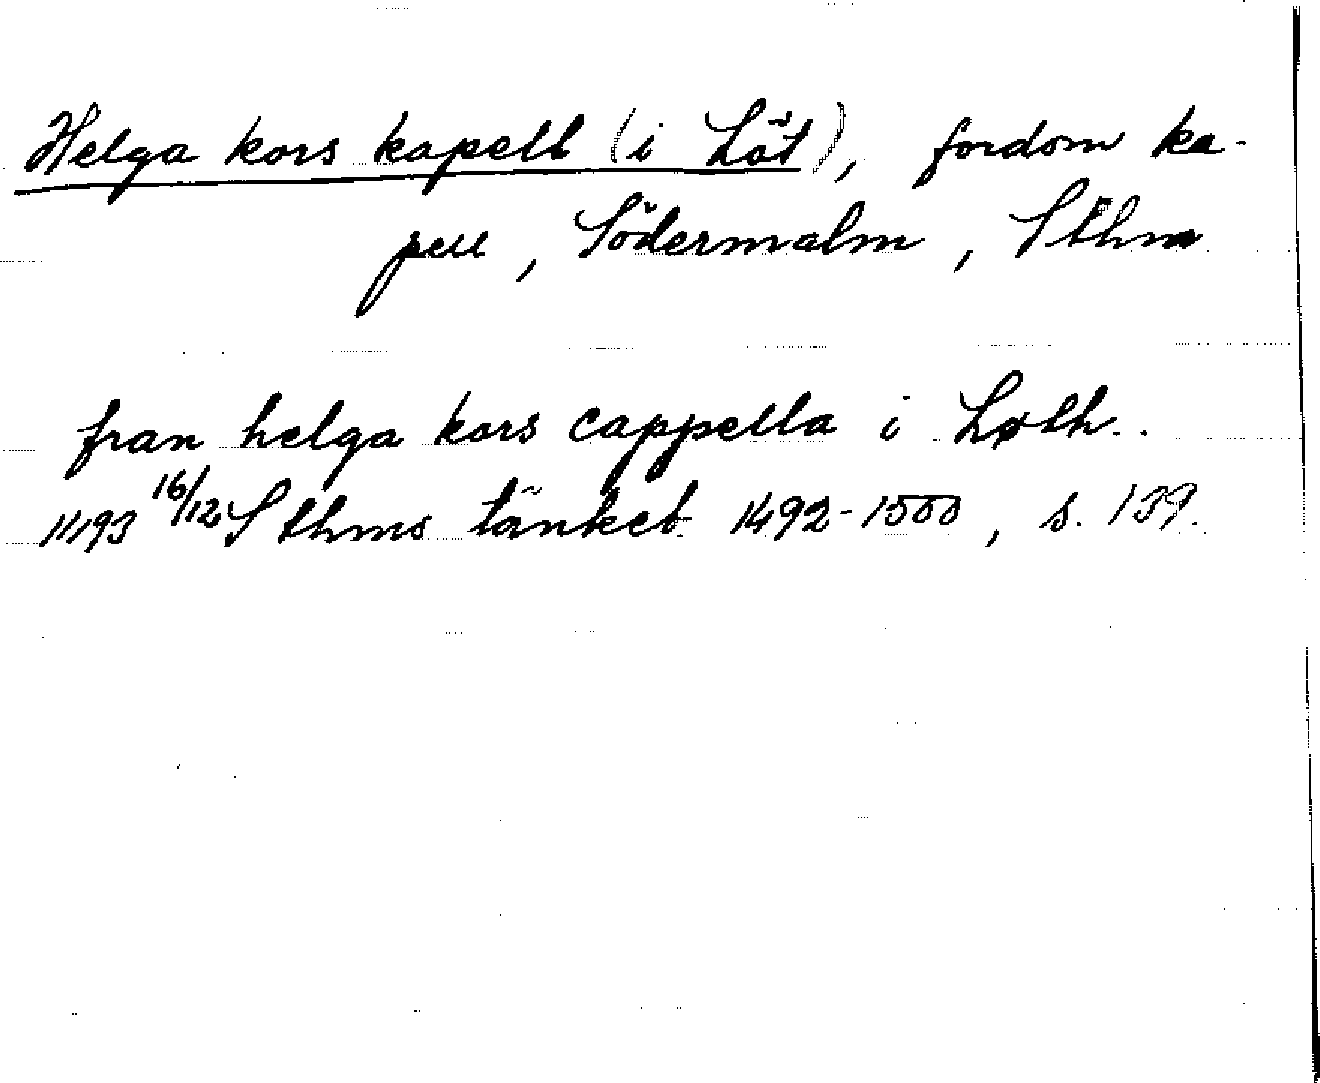 Helga kors kapell (i Löt), fordom ka-
pell, Södermalm, Sthm
fran helga kors cappella i Løth.
1493 16/12 Sthms tänkeb 1492-1500, s. 139.